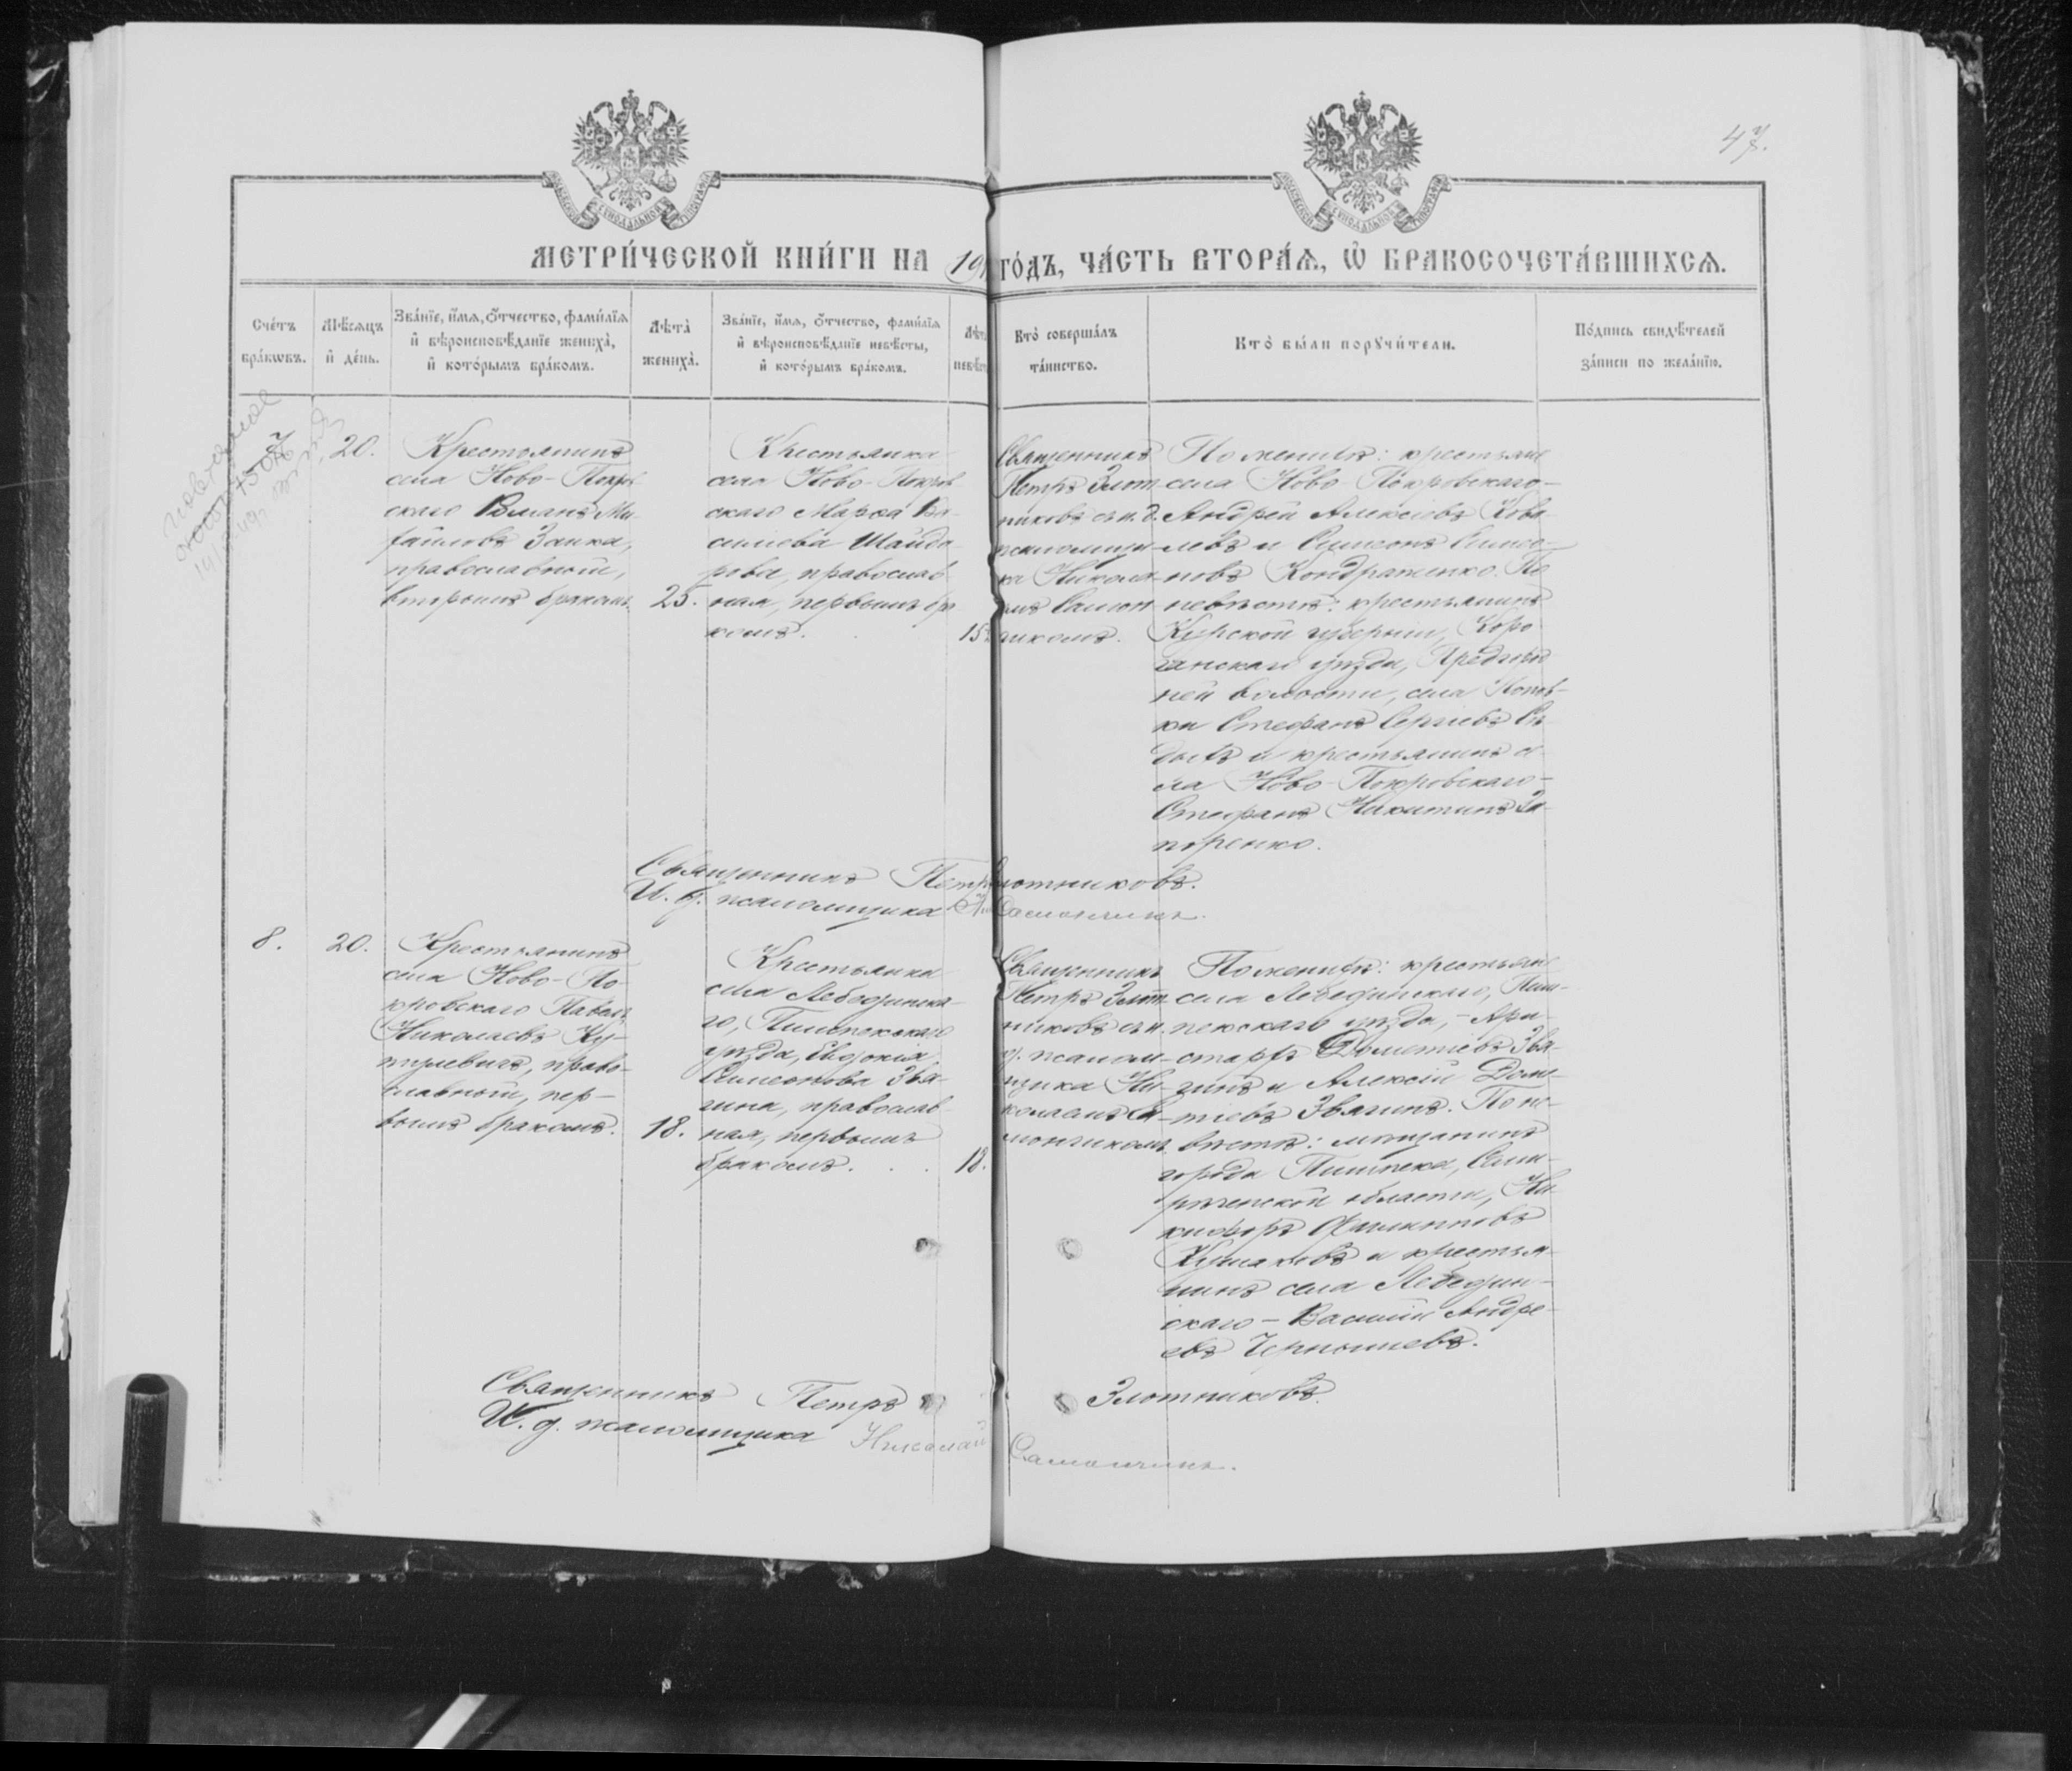 47.
МЕТРИ́ЧЕСКОЙ КНИ́ГИ НА 19 ГО́ДЪ, ЧА́СТЬ ВТОРА́Ѧ, Ѡ҆ БРАКОСОЧЕТА́ВШИХСѦ.
Сче́тъ бра́кѡвъ.
Мѣ́сѧцъ и҆ де́нь.
Зва́нїе, и҆́мѧ, ѻ҆́тчество, фами́лїѧ
и҆ вѣроисповѣ́данїе жениха̀,
и҆ кото́рымъ бра́комъ.
Лѣта̀ жениха̀.
Зва́нїе, и҆́мѧ, ѻ҆́тчество, фами́лїѧ
и҆ вѣроисповѣ́данїе невѣ́сты,
и҆ кото́рымъ бра́комъ.
Лѣта̀ невѣ́сты
Кто̀ соверша́лъ
та́инство.
Кто̀ бы́ли порꙋчи́тели.
По́дпись свидѣ́телей
за́писи по жела́нїю.
7
20.
Крестьянинъ
села Ново-Покров
скаго Романъ Ми-
хайловъ Заика,
православный,
вторымъ бракомъ.
25.
Крестьянка
села Ново-Покров
скаго Марѳа Ва-
сильева Шайдо-
рова, православ-
ная, первымъ бра
комъ.
15
Священникъ
Петръ Злот
никовъ съ и. д.
псаломщи-
ка Никола-
емъ Самон
чикомъ.
По женихѣ: крестьяне
села Ново-Покровскаго-
Андрей Алексіевъ Кова-
левъ и Симеонъ Симео-
новъ Кондратенко. По
невѣстѣ: крестьянинъ
Курской губерніи, Коро-
чанскаго уѣзда,
ней волости, села Попов-
ки Стефанъ Сергіевъ
и крестьянинъ се-
ла Ново-Покровскаго-
Стефанъ Никитинъ За-
поренко.
Священникъ Петръ Злотниковъ.
И. д. псаломщика Самончикъ.
8.
20.
Крестьянинъ
села Ново-По-
кровскаго Павелъ
Николаевъ Ку-
право-
славный, пер-
вымъ бракомъ.
18.
Крестьянка
села Лебединска-
го, Пишпекскаго
уѣзда, Евдокія
Симеонова Звя-
гина, православ-
ная, первымъ
бракомъ.
18.
Священникъ
Петръ Злот
никовъ съ и.
д. псалом-
щика Ни-
колаемъ Са-
мончикомъ.
По женихѣ: крестьяне
села Лебединскаго, Пиш-
пекскаго уѣзда,- Ари-
стархъ Дометіевъ Звя-
гинъ и Алексій Доме-
тіевъ Звягинъ. По не-
вѣстѣ: мѣщанинъ
города Пишпека, Семи-
рѣченской области, Ни-
кифоръ Филипповъ
и крестья-
нинъ села Лебедин-
скаго - Василій Андре-
евъ Чернышевъ.
Священникъ Петръ Злотниковъ.
И. д. псаломщика Николай Самончикъ.